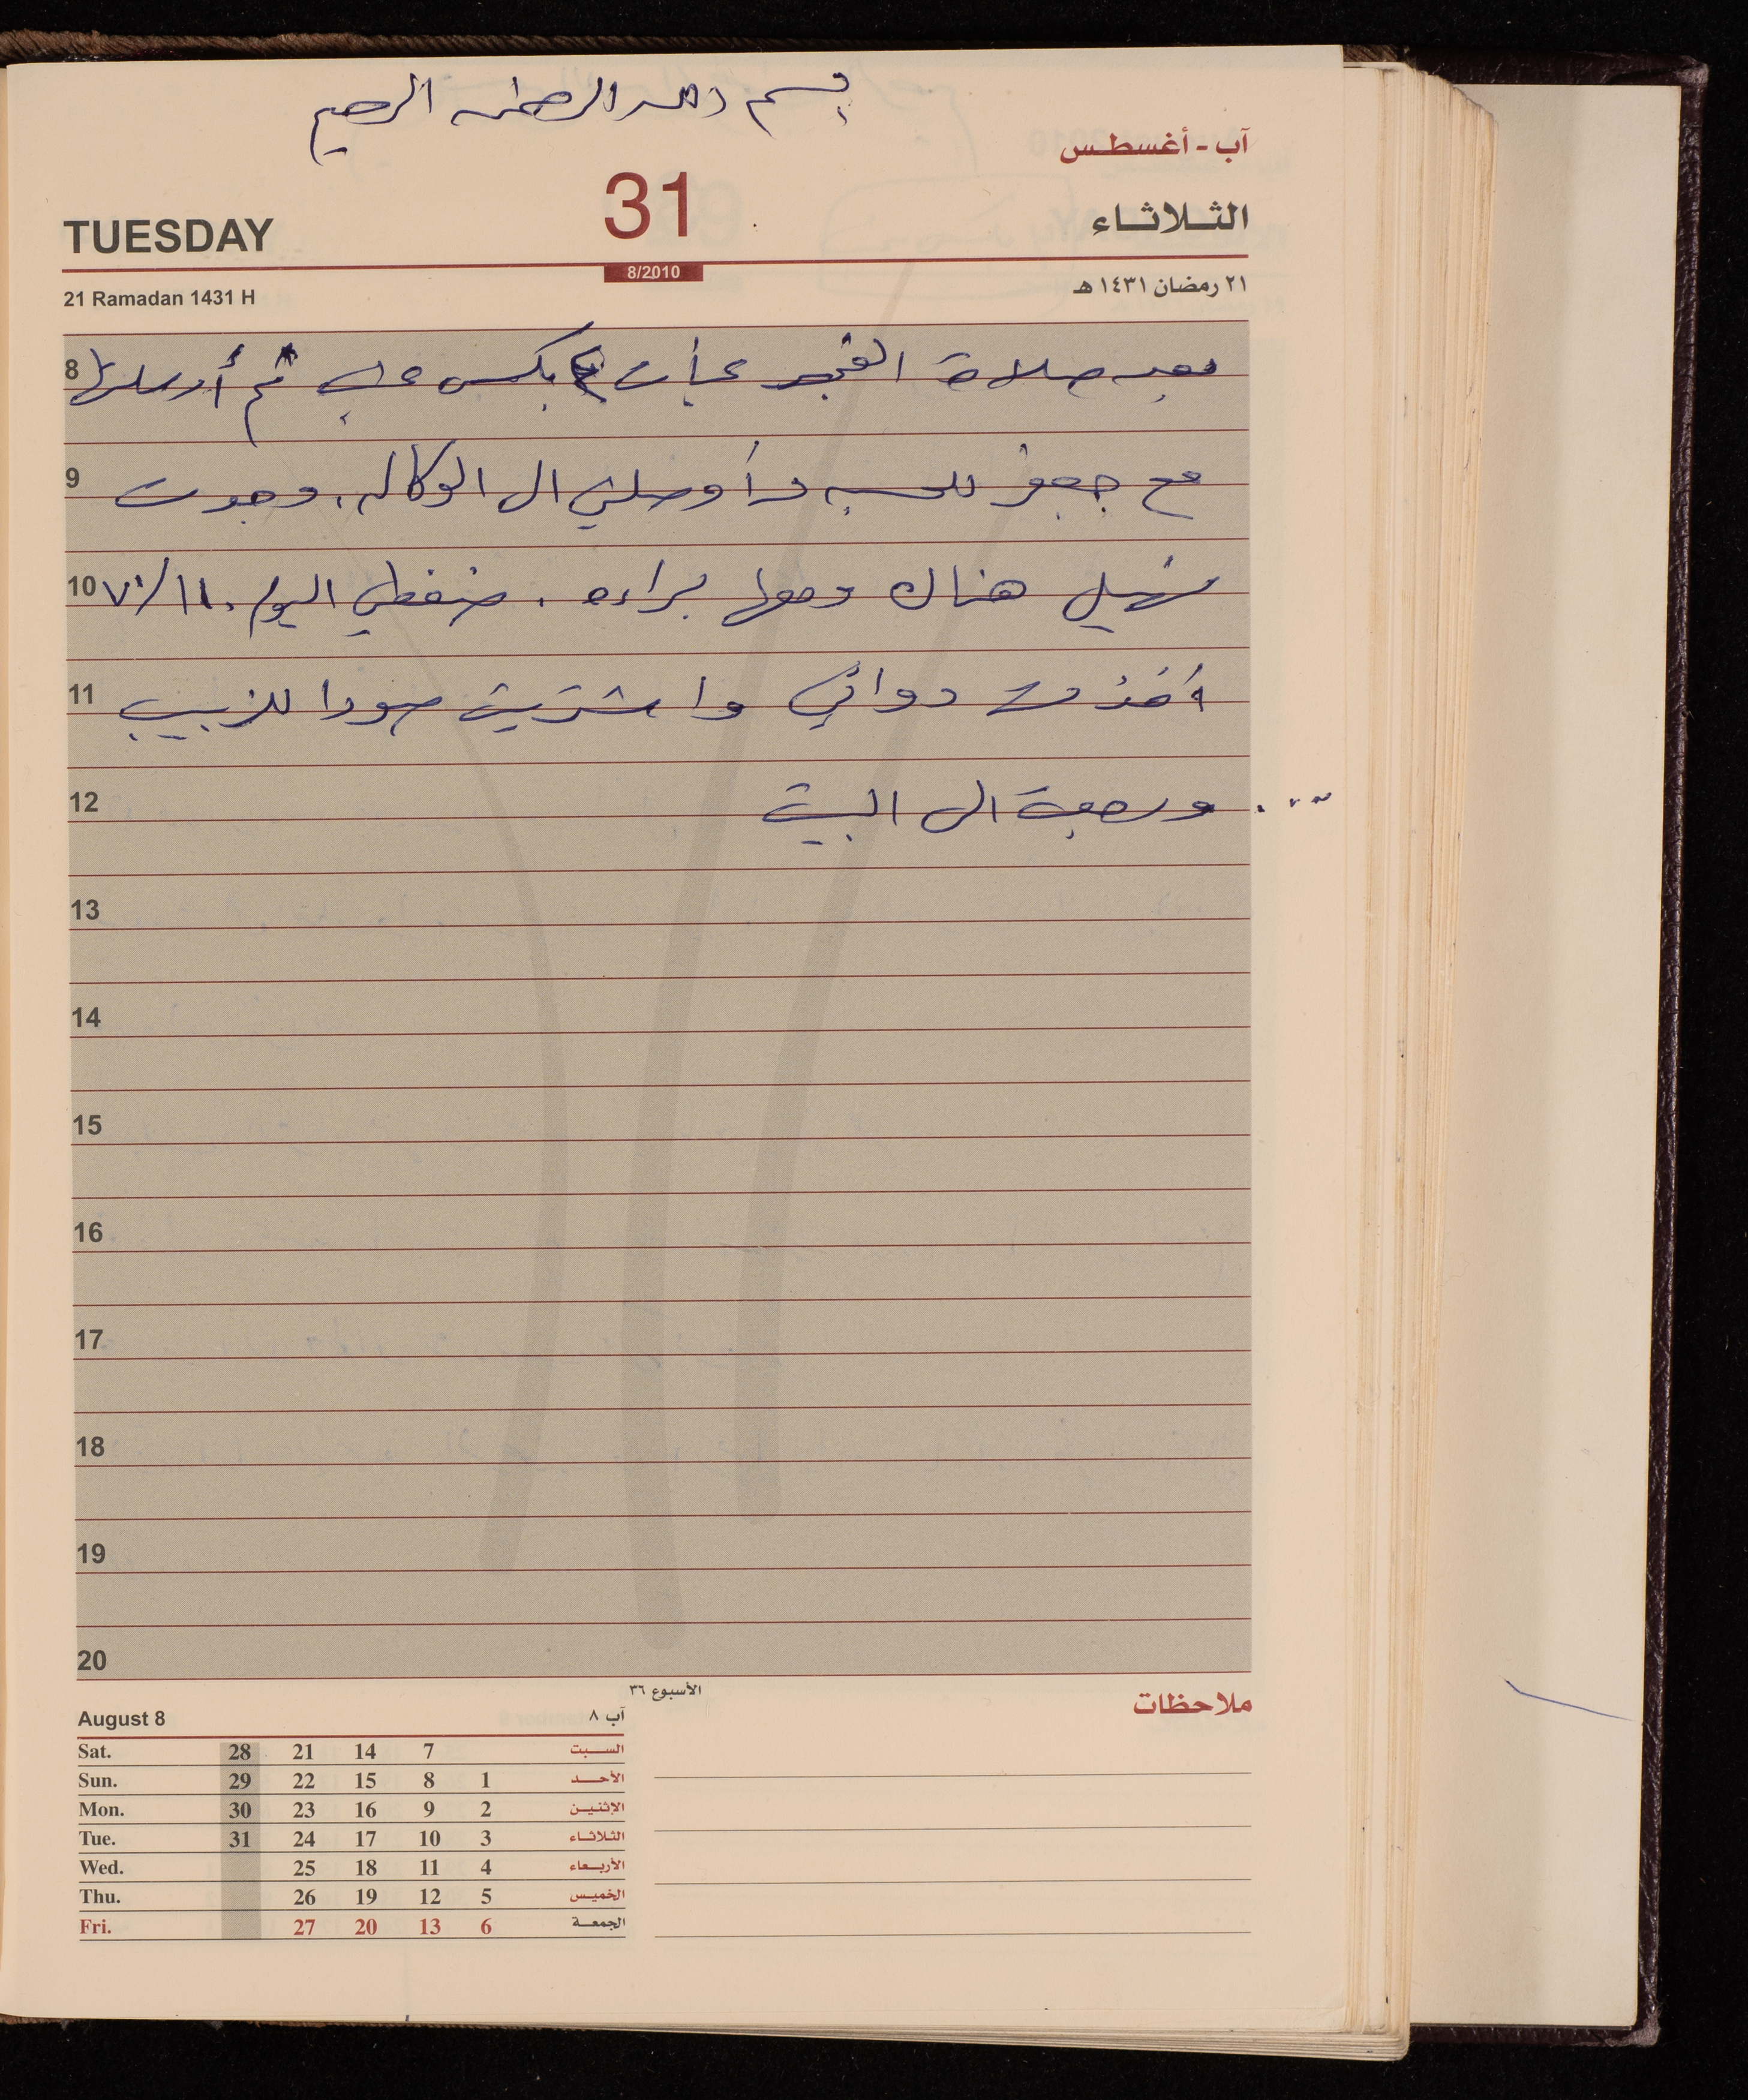 بسم الله الرحمن الرحيم
آب - أغسطس
TUESDAY 31 الثلاثاء
8/2010
21 Ramadan 1431 H ٢١ رمضان ١٤٣١ هـ
8 بعد صلاة الفجر عبأت بكس عنب ثم أرسلتها
9 مع جعفر للحسبه وأوصلني الى الوكاله، وجدت
10 نخيل هناك ومعها براءه . ضغطي اليوم ٧٠/١١٠
11 أخذت دوائي واشتريت صودا للزبيب
12 ورجعت الى البيت ...
13
14
15
16
17
18
19
20
الأسبوع ٣٦
ملاحظات
August 8 آب ٨
Sat. 28 21 14 7 السبت
Sun. 29 22 15 8 1 الأحد
Mon. 30 23 16 9 2 الإثنين
Tue. 31 24 17 10 3 الثلاثاء
Wed. 25 18 11 4 الأربعاء
Thu. 26 19 12 5 الخميس
Fri. 27 20 13 6 الجمعة